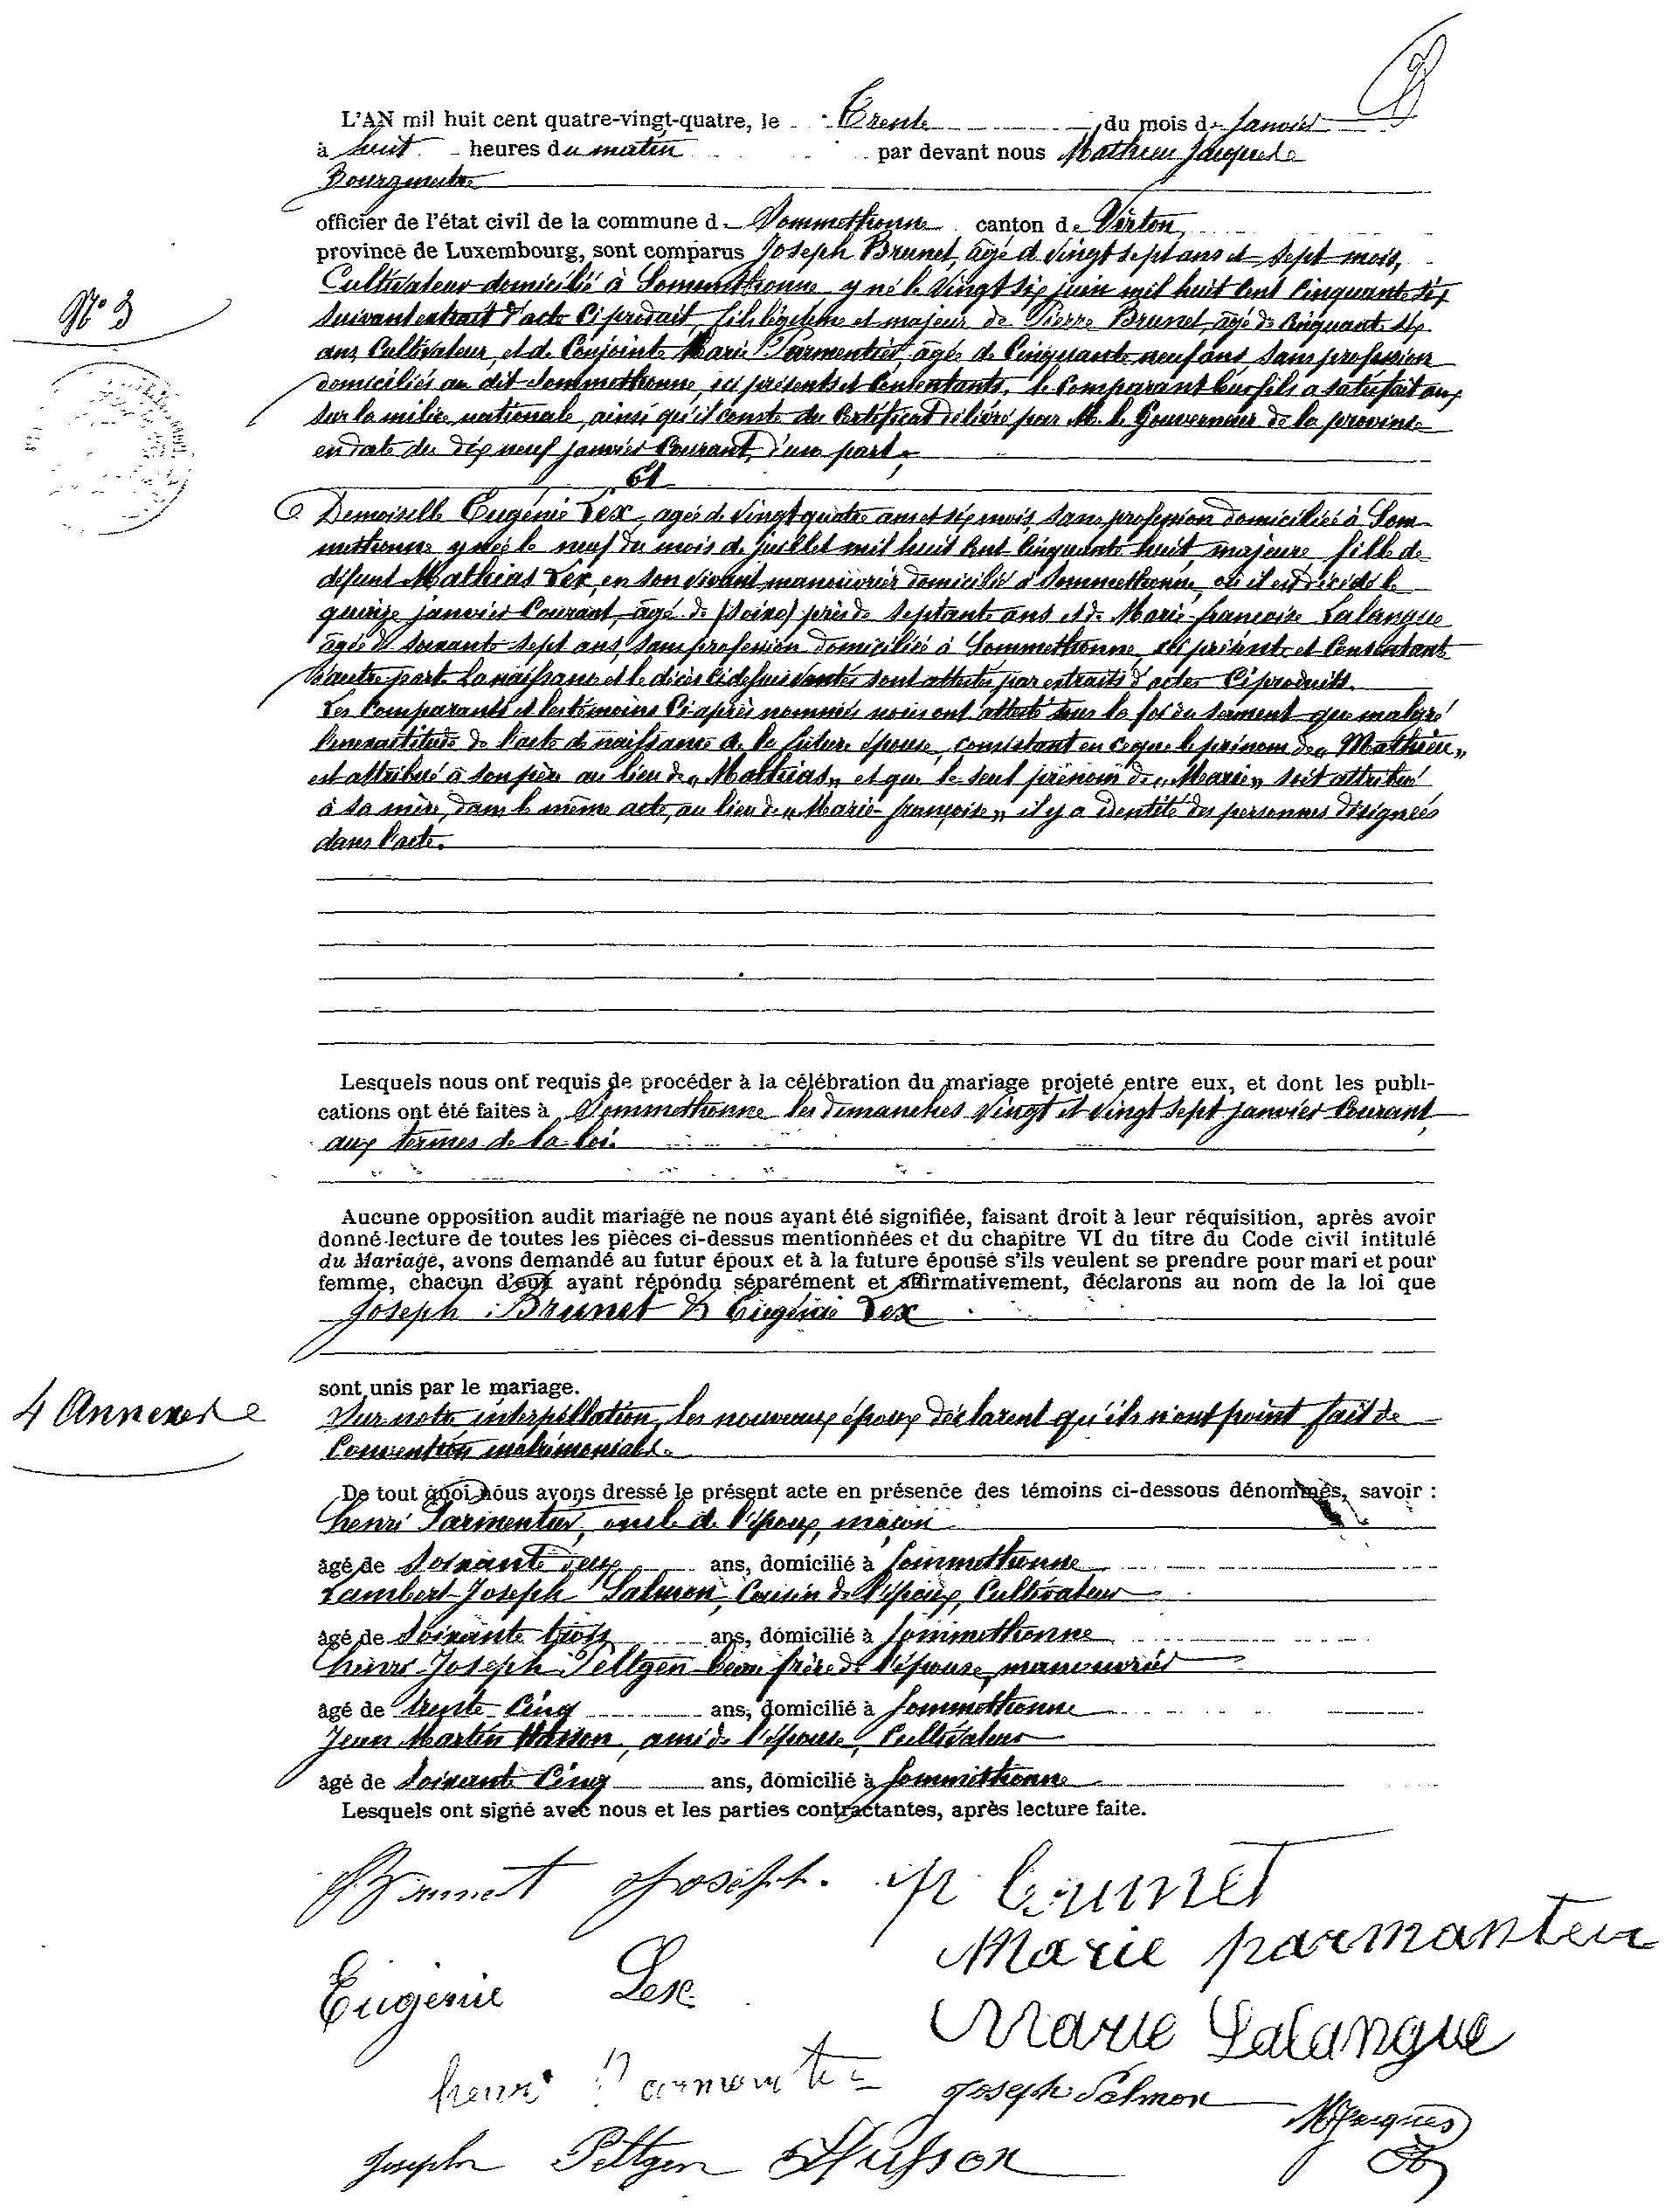 L'AN mil huit cent quatre-vingt-quatre, le Trente du mois de Janvier
à huit heures du matin par devant nous Mathieu Jacques
Bourgmestre
officier de l'état civil de la commune de Sommethonne canton de Virton,
province de Luxembourg, sont comparus Joseph Brunet, âgé de vingt sept ans et sept mois,
Cultivateur domicilié à Sommethonne y né le vingt six juin mil huit cent cinquante six
suivant extrait d'acte ci produit, fils légitime et majeur de Pierre Brunet, âgé de cinquante six
ans, Cultivateur, et de Conjointe Marie Parmentier, âgée de cinquante neuf ans, sans profession
domiciliés au dit Sommethonne, ici présents et consentants, le Comparant leur fils a satisfait aux
sur la milice nationale, ainsi qu'il conste du Certificat délivré par M. le Gouverneur de la province
en date du dix neuf janvier Courant, d'une part,
Et
Demoiselle Eugénie Lex, agée de vingt quatre ans et six mois, sans profession domiciliée à Som-
methonne y née le neuf du mois de juillet mil huit cent cinquante huit, majeure fille de
défunt Mathias Lex, en son vivant manouvrier domicilié à Sommethonne, où il est décédé le
quinze janvier Courant, âgé de près de septante ans et de Marie-françoise Lalangue
âgée de soixante sept ans, sans profession domiciliée à Sommethonne, ici présente et Consentante
d'autre part. La naissance et le décès ci dessus sont attestés par extraits d'actes ci produits.
Les Comparants et les témoins Ci après nommés nous ont attesté sous la foi du serment que malgré
l'inexactitude de l'acte de naissance de la future épouse, consistant en ce que le prénom de „Mathieu„
est attribué à son père au lieu de „Mathias„ et que le seul prénom de „Marie„ soit attribué
à sa mère, dans le même acte, au lieu de „Marie-françoise„ il y a identité des personnes désignées
dans l'acte.
N° 3
Lesquels nous ont requis de procéder à la célébration du mariage projeté entre eux, et dont les publi-
cations ont été faites à Sommethonne les dimanches vingt et vingt sept janvier Courant
aux termes de la loi.
Aucune opposition audit mariage ne nous ayant été signifiée, faisant droit à leur réquisition, après avoir
donné lecture de toutes les pièces ci-dessus mentionnées et du chapitre VI du titre du Code civil intitulé
du Mariage, avons demandé au futur époux et à la future épouse s'ils veulent se prendre pour mari et pour
femme, chacun d'eux ayant répondu séparément et affirmativement, déclarons au nom de la loi que
Joseph Brunet & Eugénie Lex
sont unis par le mariage.
4 Annexes
Sur notre interpellation, les nouveaux époux déclarent qu'ils n'ont point fait de
Convention matrimoniale.
De tout quoi nous avons dressé le présent acte en présence des témoins ci-dessous dénommés, savoir :
henri Parmentier, oncle de l'époux, maçon
âgé de soixante deux ans, domicilié à Sommethonne
Lambert-Joseph Salmon, Cousin de l'époux, Cultivateur
âgé de soixante trois ans, domicilié à Sommethonne
henri Joseph Peltgen beau frère de l'épouse, manouvrier
âgé de trente cinq ans, domicilié à Sommethonne
Jean Martin Husson, ami de l'épouse, Cultivateur
âgé de soixante cinq ans, domicilié à Sommethonne
Lesquels ont signé avec nous et les parties contractantes, après lecture faite.
Brunet Joseph. P Brunet
Marie parmanteir
Eugenie Lex
Marie Lalangue
henri Parmonte
Joseph Salmon
M Jacques
Joseph Peltgen Husson